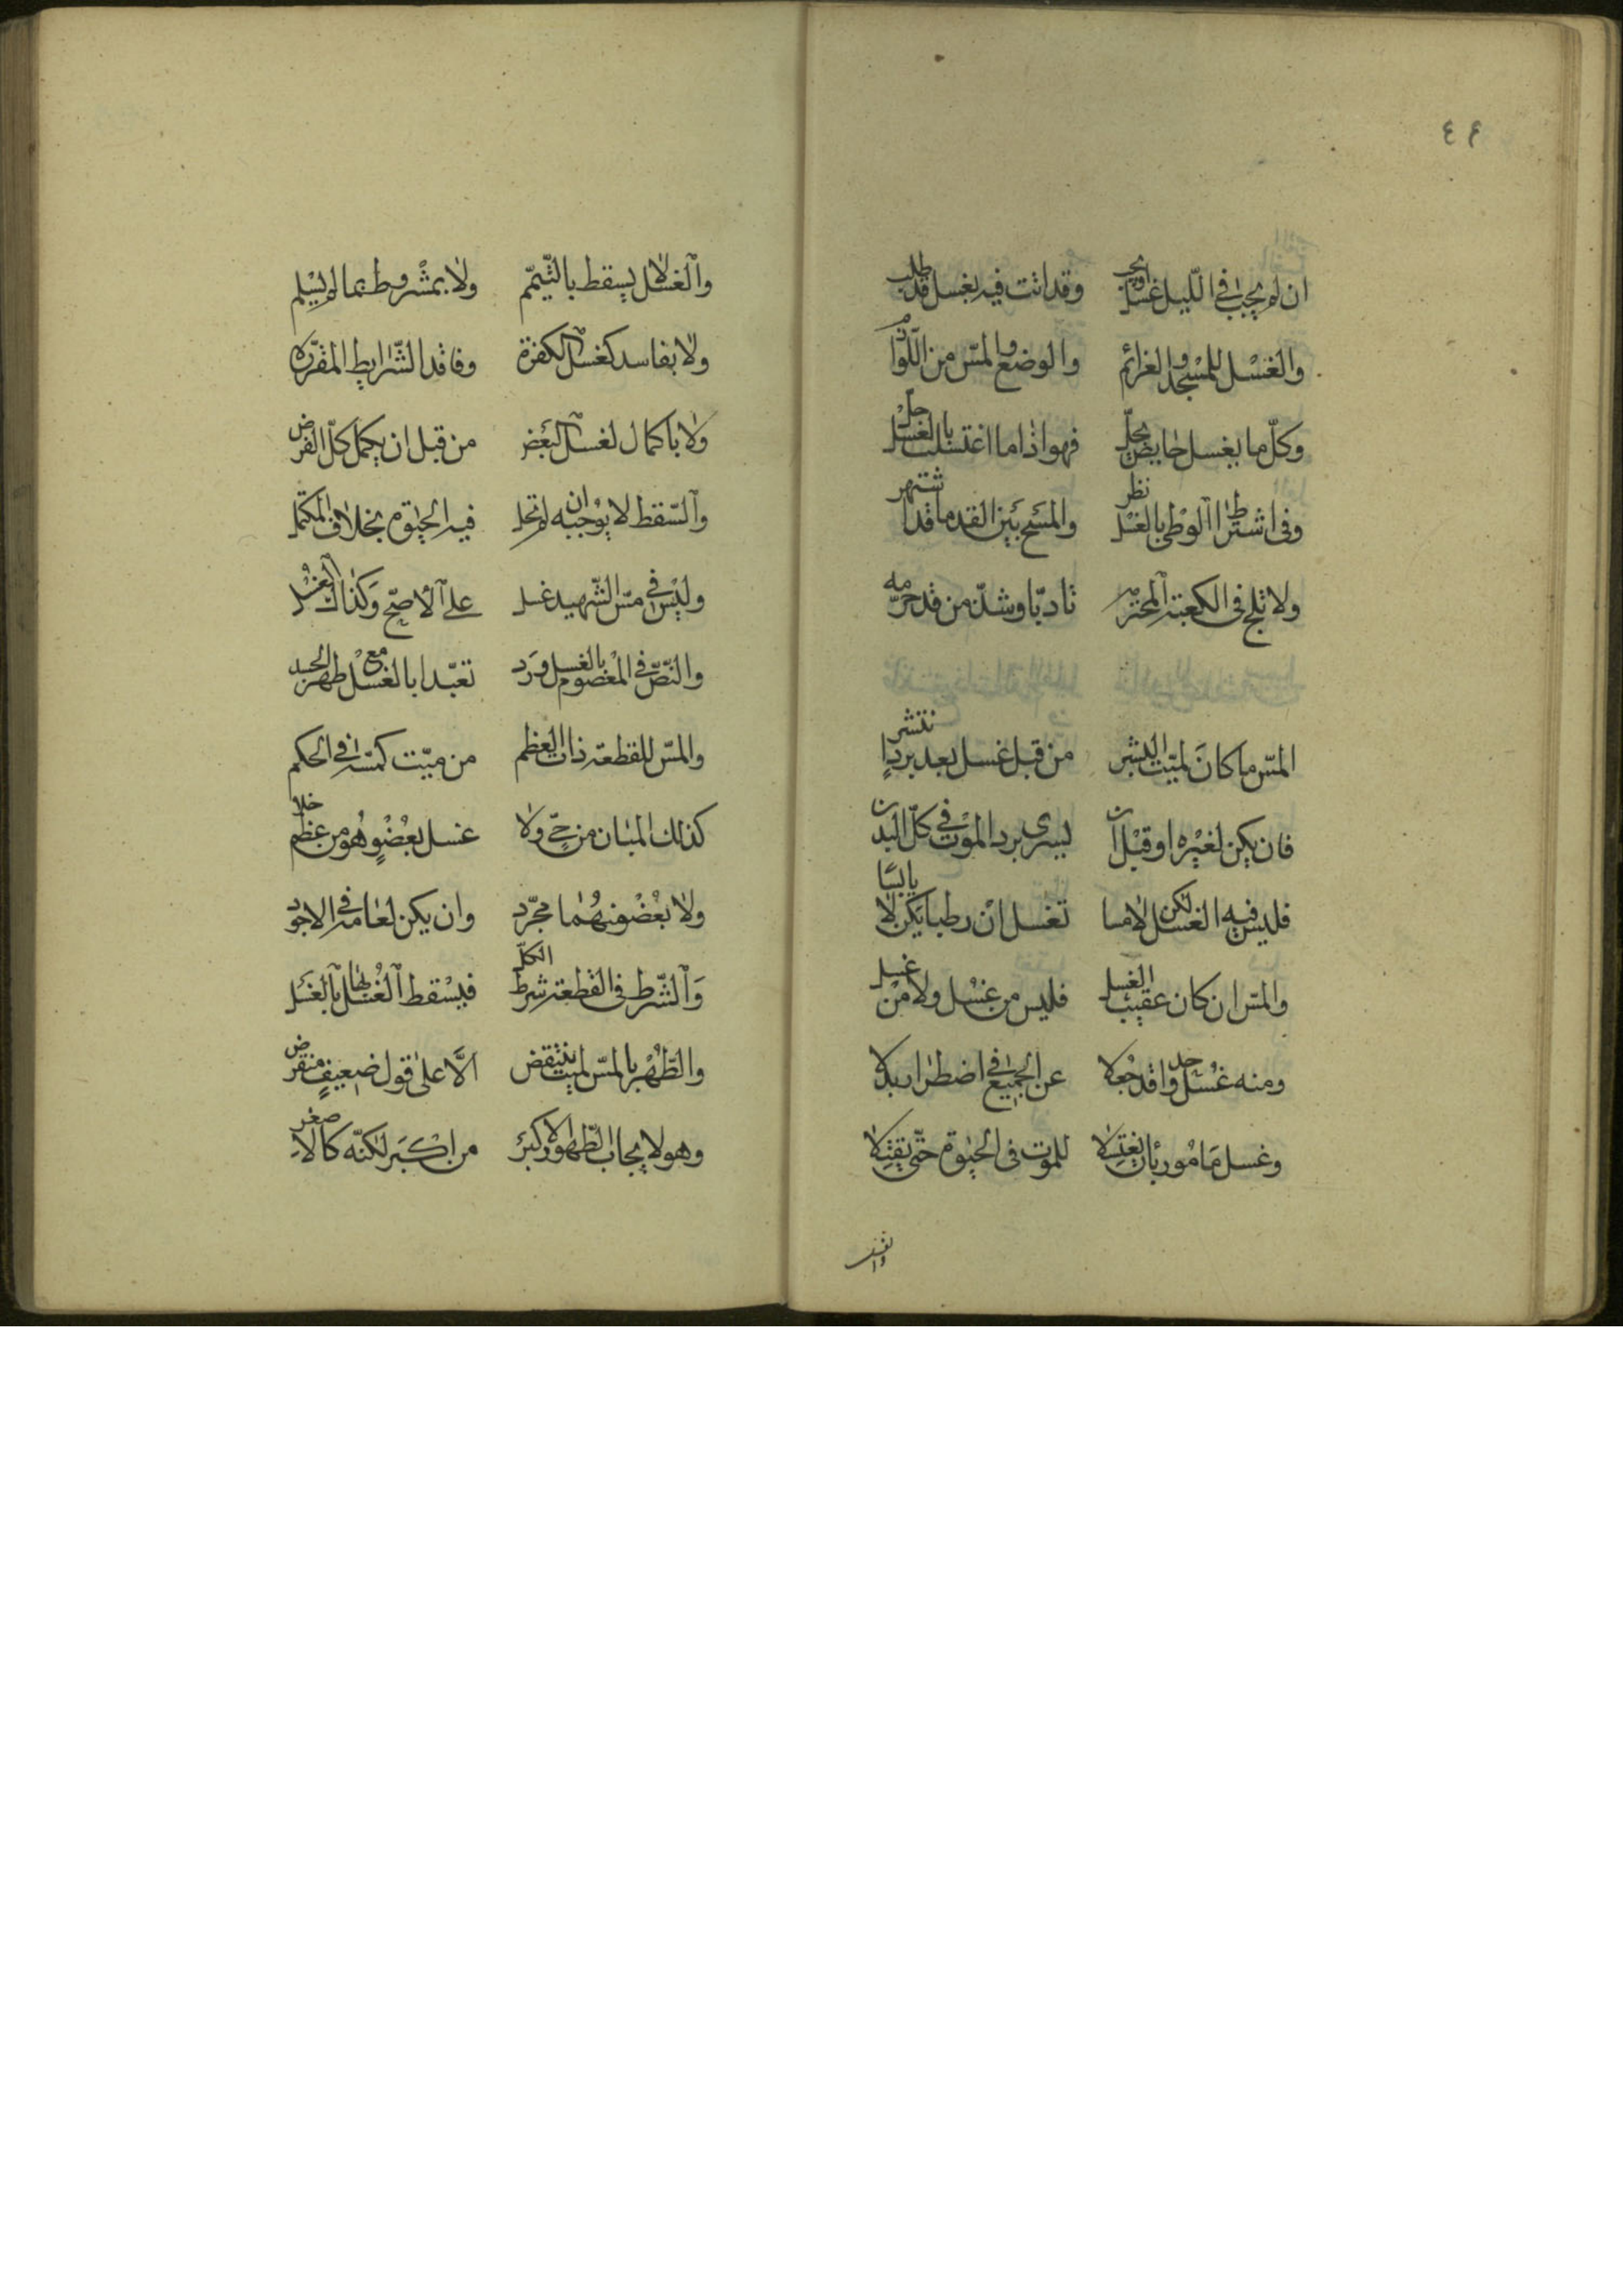 ٤٤
ان لم يجب في الليل غسل او يجب وقد اتت فيه بغسل قد طلب
والغسل للمسجد والعزائم والوضع والمس من اللوازم
وكل ما بغسل حايض يحل فهو اذا ما اغتسلت بالغسل حل
وفي اشتراط الوطي بالغسل نظر والمسح بين القدما قد اشتهر
ولا تلج في الكعبة المحترمه تادبا وشذ من قد حرمه
المس ما كان لميت البشر من قبل غسل بعد برد انتشر
فان يكن لغيره او قبل ان يسري برد الموت في كل البدن
فليس فيه الغسل لكن لامسا تغسل ان رطبا يكن لا يابسا
والمس ان كان عقيب الغسل فليس من غسل ولا من غسل
ومنه غسل واحد قد جعلا عن الجميع في اضطرار بدلا
وغسل مامور بان يغتسلا للموت في الحيوة حتى يقتلا
والغسل لا يسقط بالتيمم ولا بمشروط بما لم يسلم
ولا بفاسد كغسل الكفرة وفاقد الشرايط المقرره
ولا باكمال لغسل البعض من قبل ان يكمل كل الفرض
والسقط لا يوجبه ان لم تحل فيه الحيوة بخلاف المكتمل
وليس في مس الشهيد غسل على الاصح وكذاك الغسل
والنص في المعصوم بالغسل ورد تعبدا بالغسل مع طهر الجسد
والمس للقطعة ذات العظم من ميت كمسه في الحكم
كذلك المبان من حي ولا غسل بعضو هو من عظم خلا
ولا بعضو منهما مجرد وان يكن لعامه في الاجود
والشرط في القطعة شرط الكل فيسقط الغسل لها بالغسل
والطهر بالمس لميت ينتقض الا على قول ضعيف منقرض
وهو لايجاب الطهور الاكبر من اكبر لكنه كالاصغر